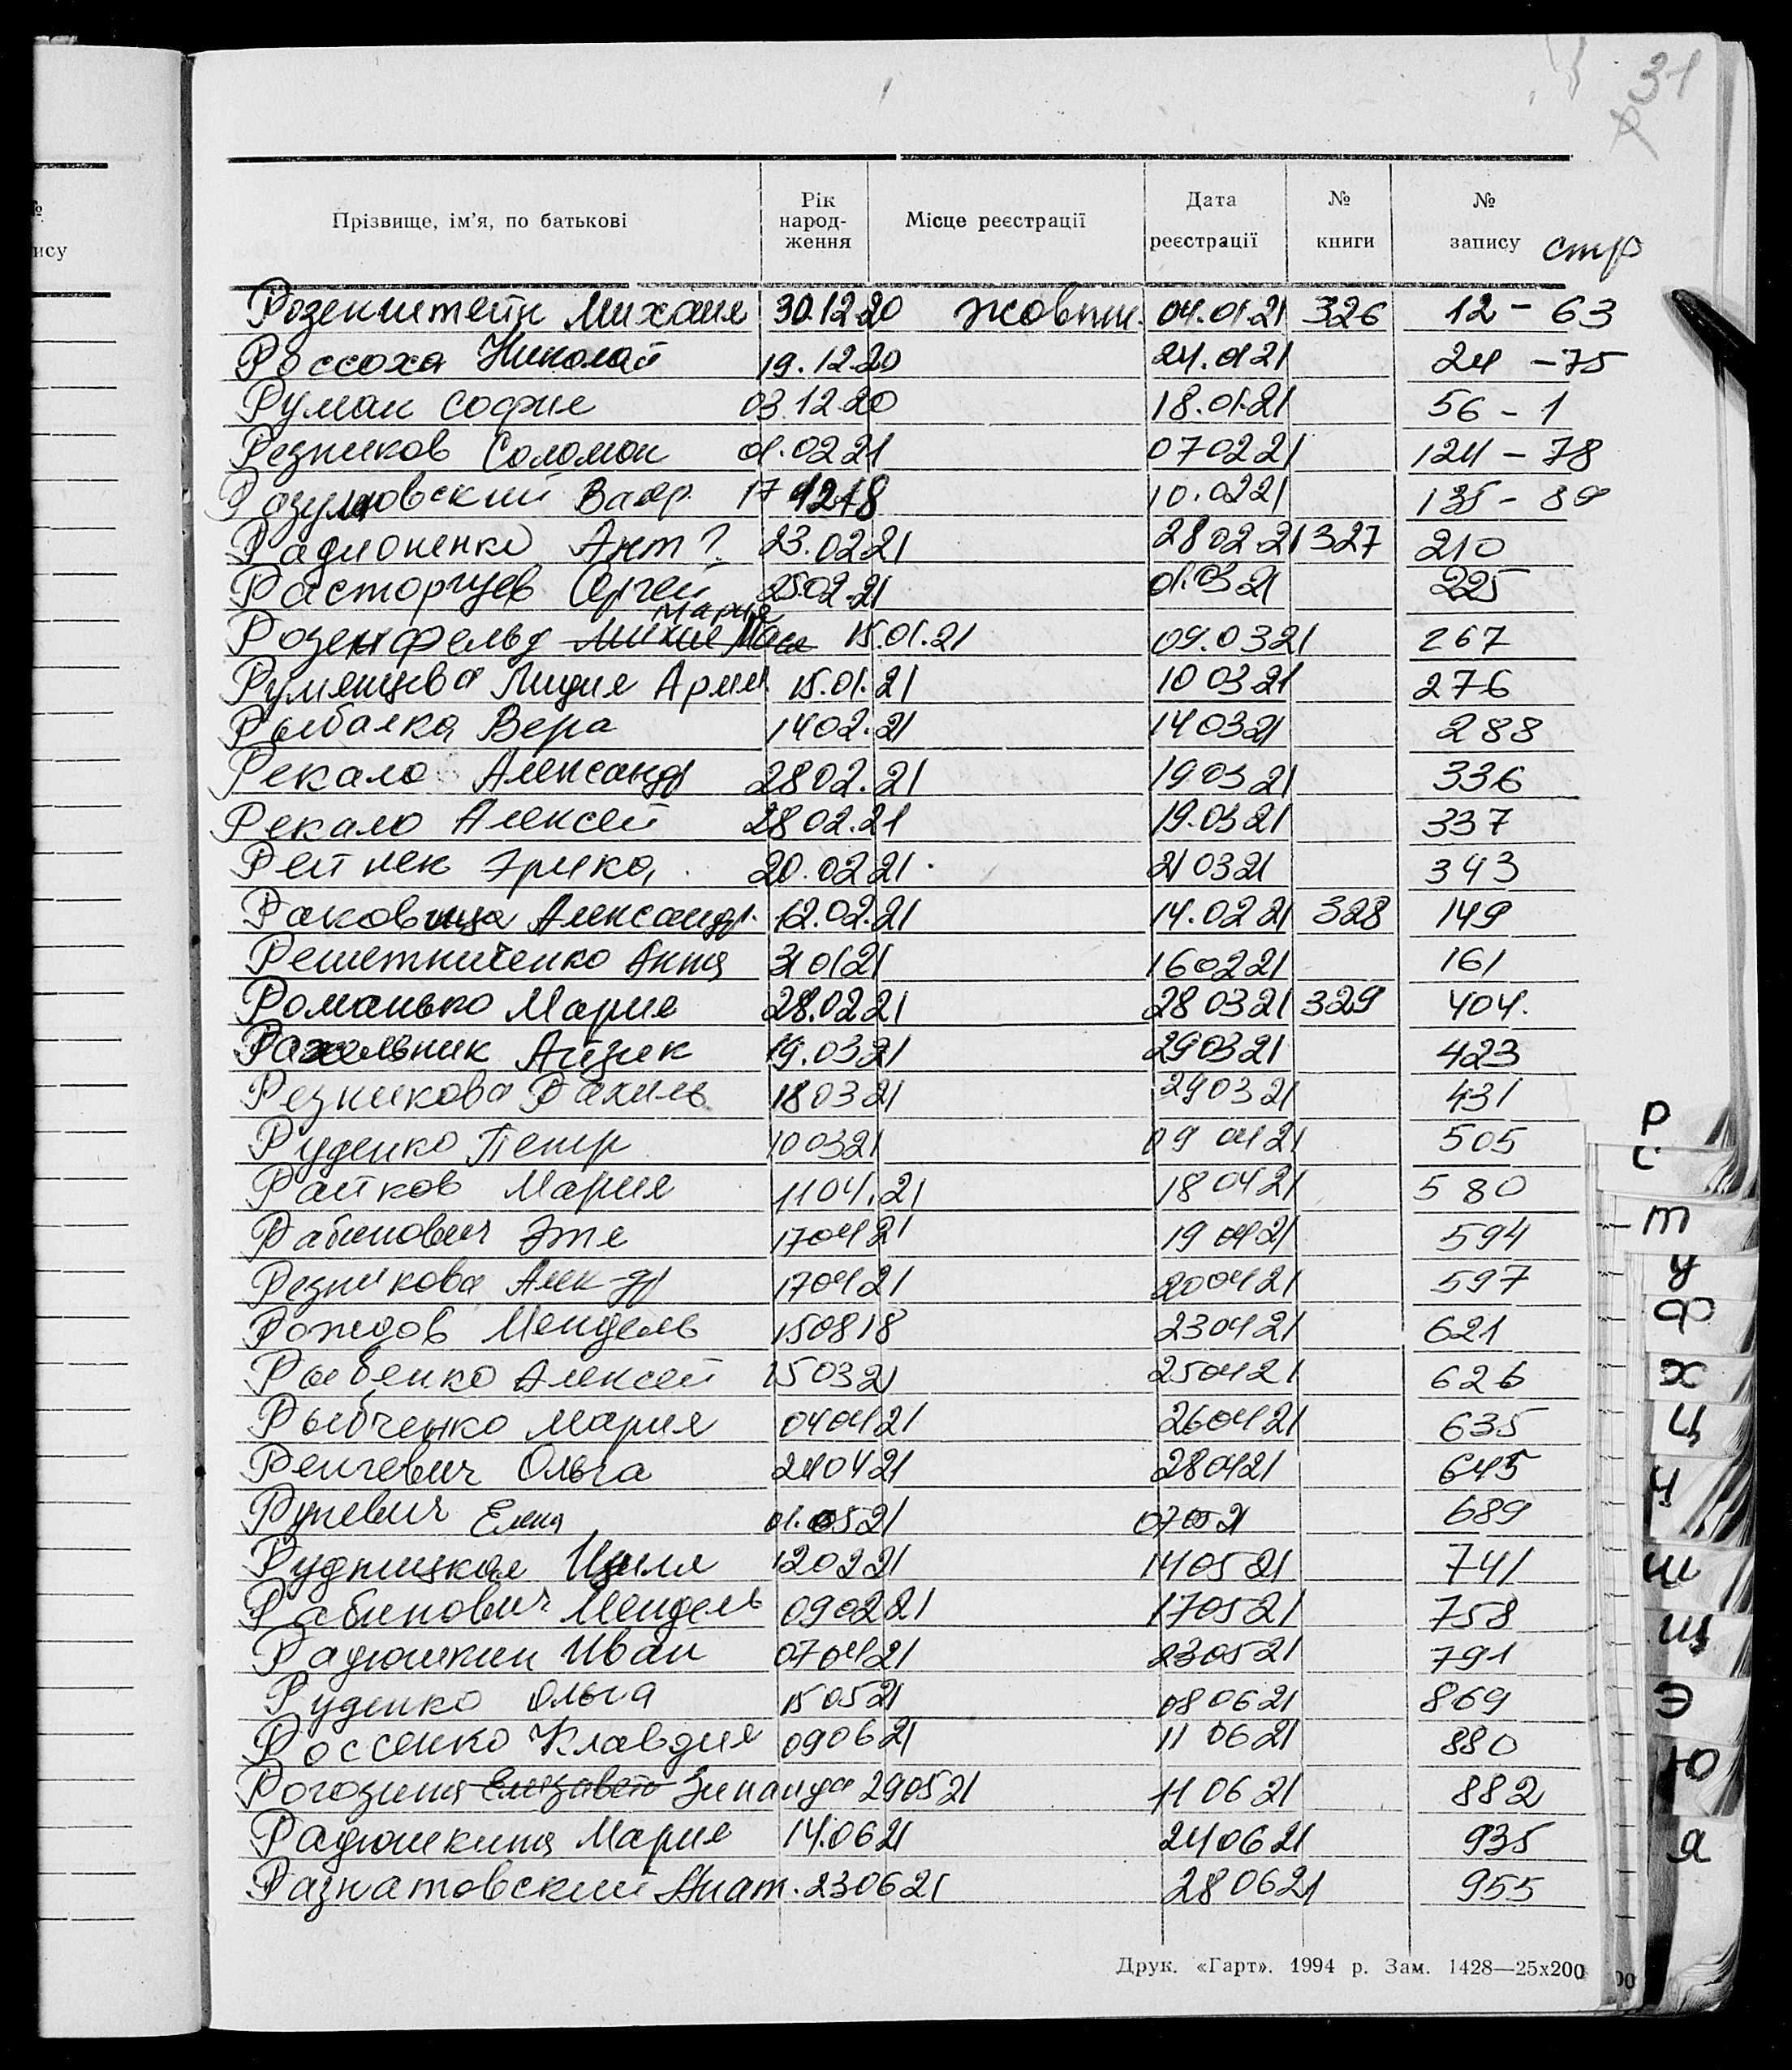 31
Р
Прізвище, ім'я, по батькові Рік народ-ження Місце реєстрації Дата реєстрації № книги № запису стр
Розенштейн Михаил 30.12.20 Жовтн. 04.01.21 326 12 - 63
Россоха Николай 19.12.20 24.01.21 24 - 75
Руман София 03.12.20 18.01.21 56 - 1
Резников Соломон 01.02.21 070221 124 - 78
Разумовский 17 1218 10.0221 135 - 89
Радионенко Ант? 23.0221 28 02.21 327 210
Расторгуев Сергей 25.02.21 01.03 21 225
Мария
Розенфельд 15.01.21 09.0321 267
Румянцева Лидия 15.01.21 10 03 21 276
Рыбалка Вера 1402.21 140321 288
Рекало Александр 2802.21 1903 21 336
Рекало Алексей 28 02.21 19.03 21 337
Рейнек Эрика 20.02 21 210321 343
Раковица Александр. 12.02.21 14.02 21 328 149
Решетниченко Анна 310121 160221 161
Романько Мария 28.0221 28 0321 329 404.
Айзик 19.0321 290321 423
Резникова Рахиль 180321 290321 431
Руденко Петр 100321 09 0421 505
Райков Мария 1104.21 180421 580
Рабинович Этя 170421 19 0421 594
Резникова Алек-др 170421 200421 597
Рождов Мендель 150818 230421 621
Рыбенко Алексей 150321 250421 626
Рыбченко Мария 040421 260421 635
Ренгевич Ольга 240421 280421 645
Руневич Елена 01.0521 070521 689
Рудницкая Циля 120221 140521 741
Рабинович Мендель 090221 170521 758
Радюшкин Иван 070421 230521 791
Руденко Ольга 150521 080621 869
Россенко Клавдия 090621 11 0621 880
Рогозина Елизавета Зинаида 290521 11 0621 882
Радюшкина Мария 14.0621 240621 935
Разнатовский Анат. 230621 280621 955
Друк. «Гарт». 1994 р. Зам. 1428—25x200
№
ису
Р
С
Т
У
Ф
Х
Ц
Ч
Ш
Щ
Э
Ю
Я
00